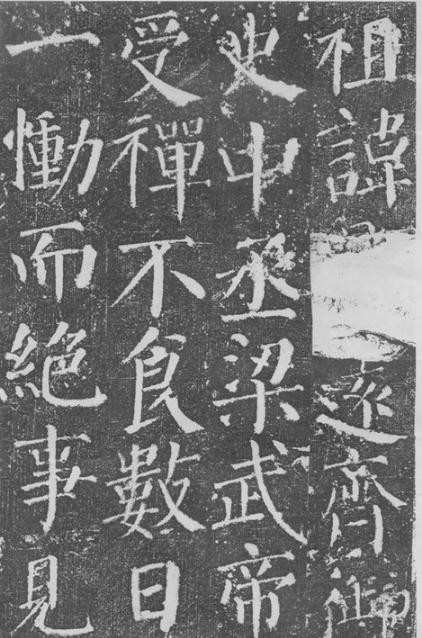 祖諱遠齊御
史中丞梁武帝
受禪不食數日
一慟而絕事見